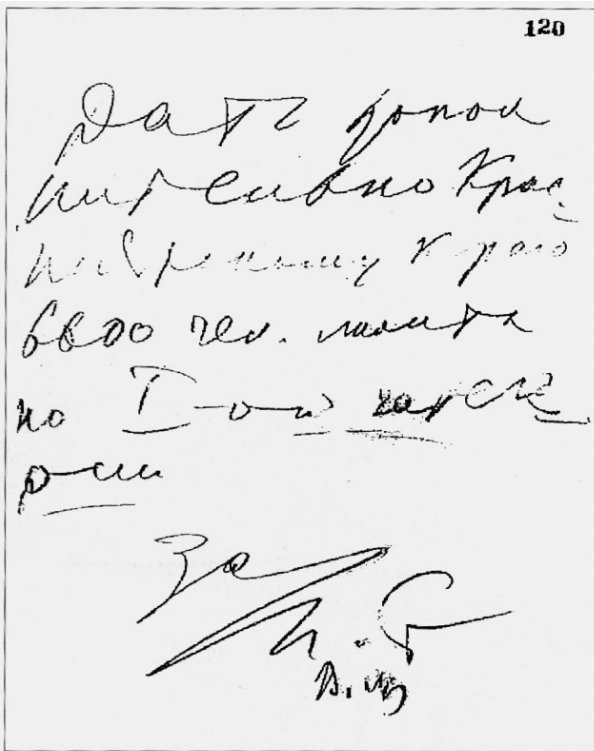 120
Дать допол
нительно Крас-
ноярскому краю
6600 чел. лимита
по I-ой катего
рии
За
И. Ст
В. М